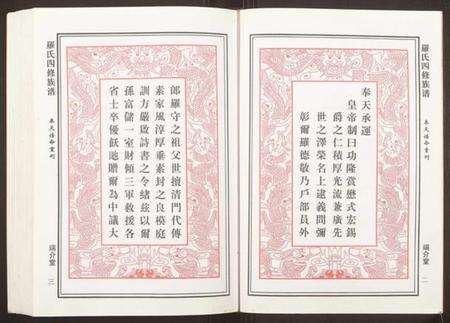 羅氏四修族譜
奉天誥命重刊
奉天承運
皇帝制曰功隆賞懋式宏錫
爵之仁積厚光流兼廣先
世之澤榮名上逮義問彌
彰爾羅德敬乃戶部員外
端介堂
二
郎羅守之祖父世擅清門代傳
素家風淳厚垂素封之良模庭
訓方嚴啟詩書之令緒茲以爾
孫富儲一室財傾三軍救援各
省士卒優飫貤贈爾為中議大
羅氏四修族譜
奉天誥命重刊
端介堂
三